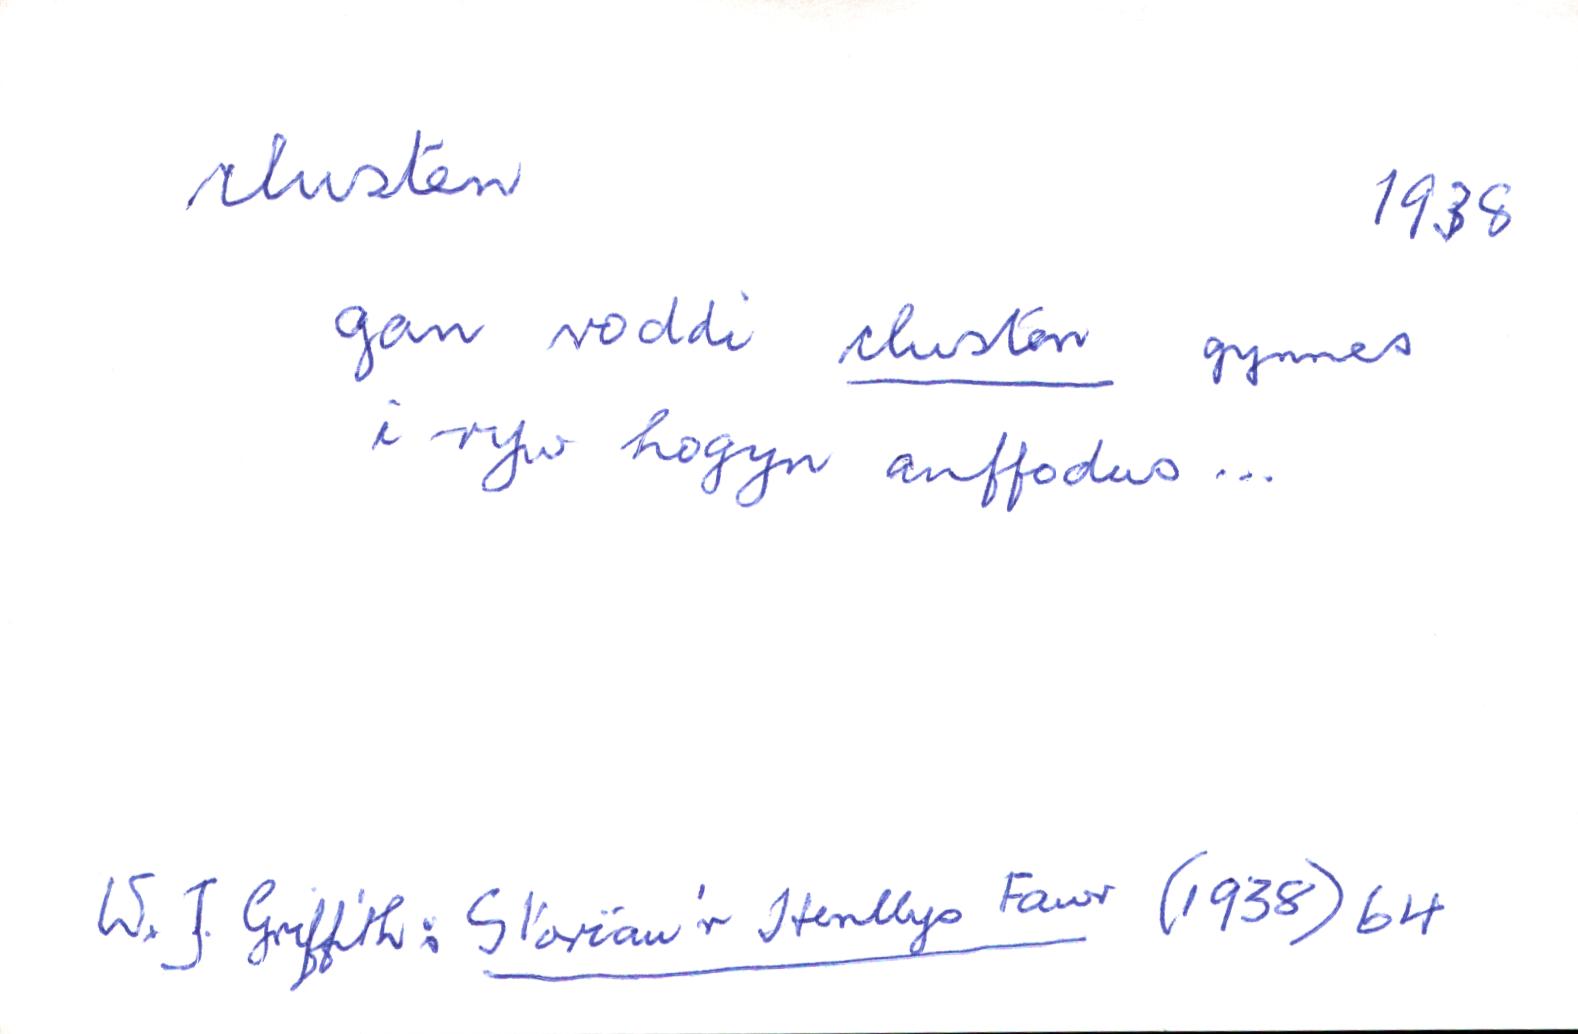 clusten 1938
gan roddi clusten gynnes
i ryw hogyn anffodus...
W. J. Griffith: Storïau'r Henllys Fawr (1938) 64